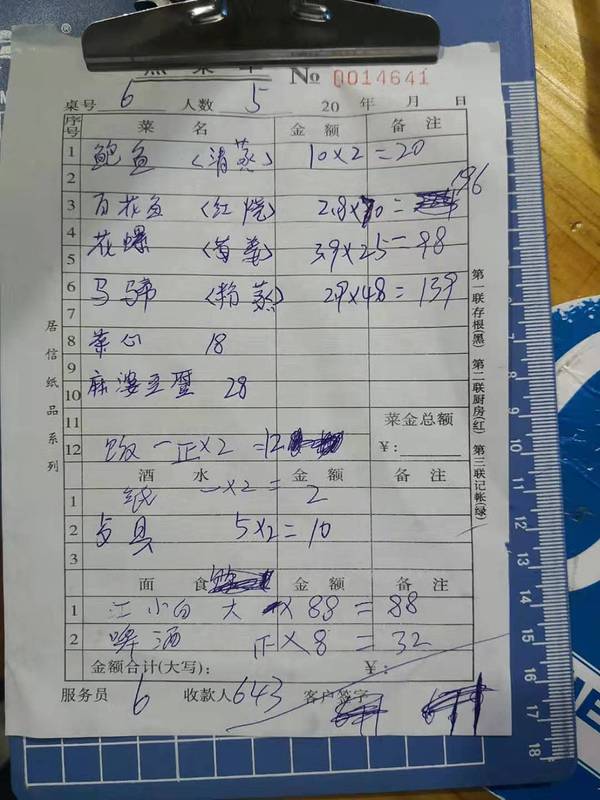 点菜单 No 0014641
桌号 6 人数 5 20 年 月 日
序号 菜 名 金 额 备 注
1 鲍鱼 (清蒸) 10x2=20
2
3 百花鱼 (红烧) 2.8x70= 196
4
5 花螺 39x25=98
6 马蹄 (粉蒸) 29x48=139
7
8 菜心 18
9
10 麻婆豆腐 28
11 菜金总额
12 饭 一正x2=12 ¥:
酒 水 金 额 备 注
1 纸 一x2=2
2 具 5x2=10
3
面 食 金 额 备 注
1 江小白 大 x88=88
2 啤酒 正x8=32
金额合计(大写): ¥:
服务员 6 收款人 643 客户签字
居信纸品系列
第一联存根(黑) 第二联厨房(红) 第三联记帐(绿)
1 2 3 4 5 6 7 8 9 10 11 12 13 14 15 16 17 18